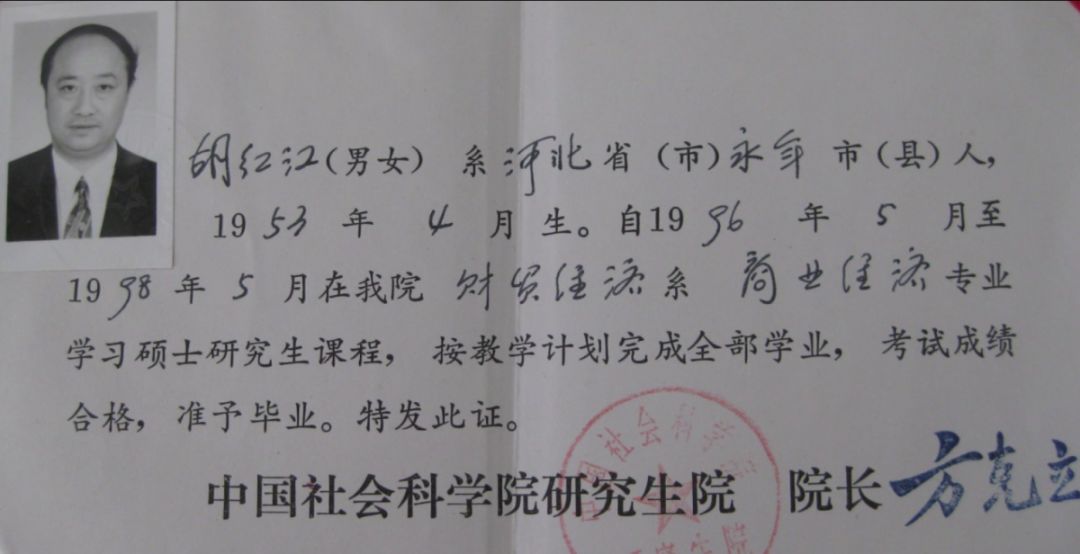 胡红江(男女) 系河北省(市)永年市(县)人,
1953年4月生。自1996年5月至
1998年5月在我院财贸经济系商业经济专业
学习硕士研究生课程, 按教学计划完成全部学业, 考试成绩
合格, 准予毕业。特发此证。
中国社会科学院研究生院 院长 方克立
中国社会科学院
研究生院